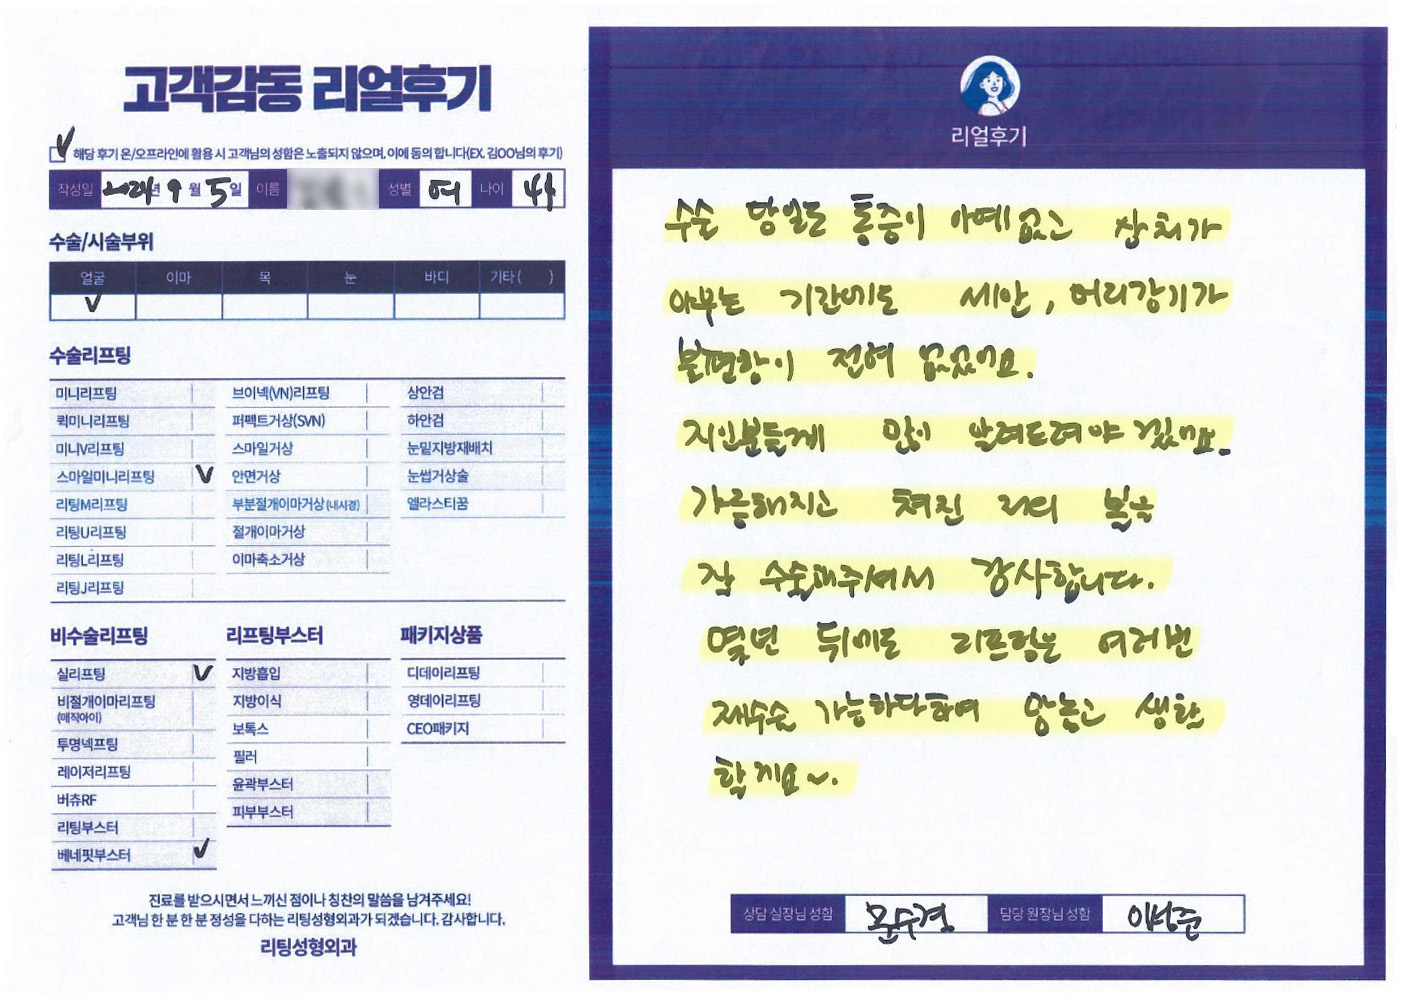 고객감동 리얼후기
해당 후기 온/오프라인에 활용 시 고객님의 성함은 노출되지 않으며, 이에 동의 합니다(EX. 김OO님의 후기)
작성일 2024년 9월 5일 이름 성별 여 나이 44
수술/시술부위
얼굴 이마 목 눈 바디 기타 ( )
수술리프팅
미니리프팅
퀵미니리프팅
미니V리프팅
스마일미니리프팅
리팅M리프팅
리팅U리프팅
리팅L리프팅
리팅J리프팅
브이넥(VN)리프팅
퍼펙트거상(SVN)
스마일거상
안면거상
부분절개이마거상 (내시경)
절개이마거상
이마축소거상
상안검
하안검
눈밑지방재배치
눈썹거상술
엘라스티꿈
비수술리프팅
실리프팅
비절개이마리프팅
(매직아이)
투명넥프팅
레이저리프팅
버츄RF
리팅부스터
베네핏부스터
리프팅부스터
지방흡입
지방이식
보톡스
필러
윤곽부스터
피부부스터
패키지상품
디데이리프팅
영데이리프팅
CEO패키지
진료를 받으시면서 느끼신 점이나 칭찬의 말씀을 남겨주세요!
고객님 한 분 한 분 정성을 다하는 리팅성형외과가 되겠습니다. 감사합니다.
리팅성형외과
리얼후기
수술 당일도 통증이 아예 없고 상처가
아무는 기간에도 세안, 머리감기가
불편함이 전혀 없었어요.
지인분들께 많이 알려드려야 겠어요.
갸름해지고 쳐진 저의 볼을
잘 수술해주셔서 감사합니다.
몇년 뒤에도 리프팅은 여러번
재수술 가능하다하여 맘놓고 생활
할께요~.
상담 실장님 성함 문수경 담당 원장님 성함 이성준